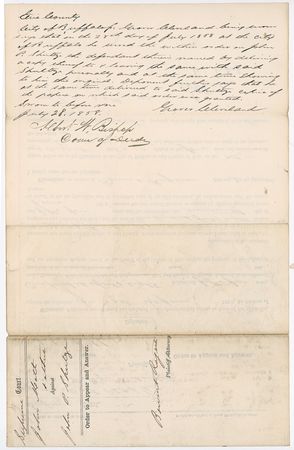 Erie County
City of Buffalo, ss. Grover Cleveland being sworn
says that on the 28th day of July 1858 at the city
of Buffalo he served the within order on John
P. Shultz the defendant therein named by delivering
a copy thereof to & leaving the same with said
Shultz personally and at the same time showing
to him the original. Deponent further says that
at the same time delivered to said Shultz copies of
the papers on which said order was granted.
Sworn to before me
July 28, 1858
Grover Cleveland
Robt W. Bishop
Comr of Deeds
Supreme Court
John
Against
John P. Shultz
Order to Appear and Answer.
Plaintiff's Attorney